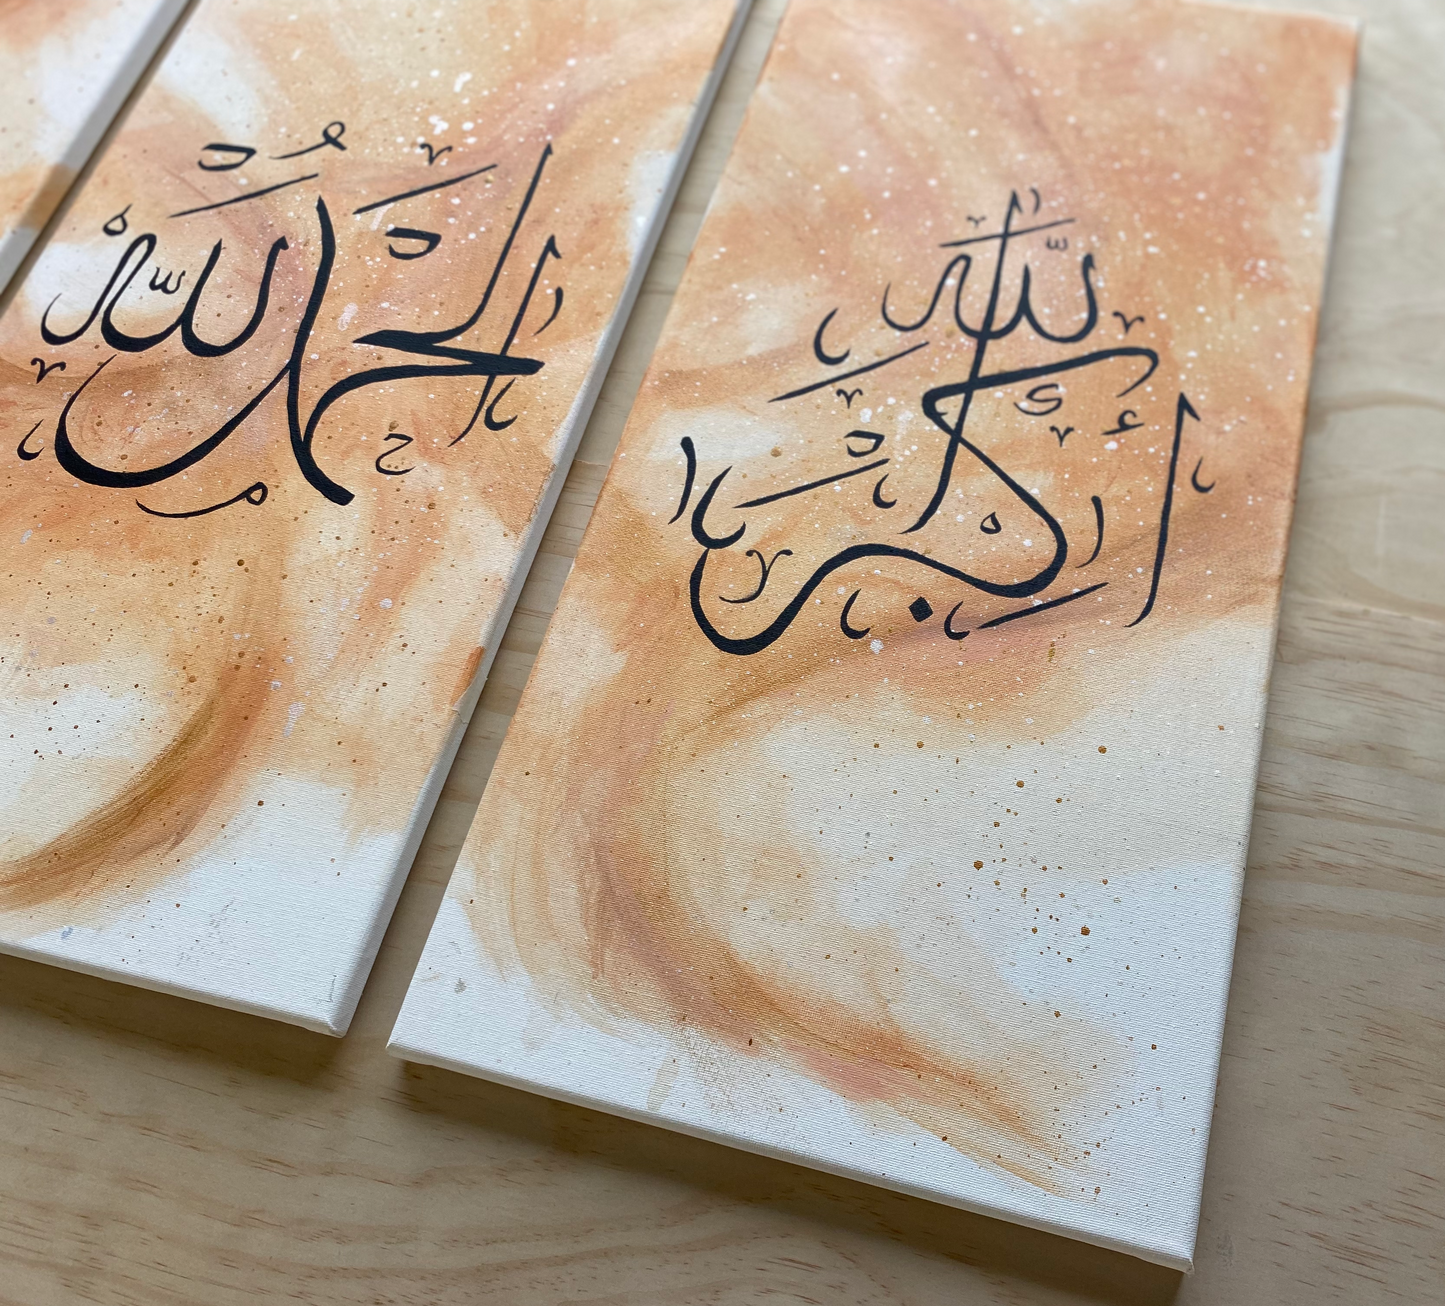 الحمد لله
الله أكبر